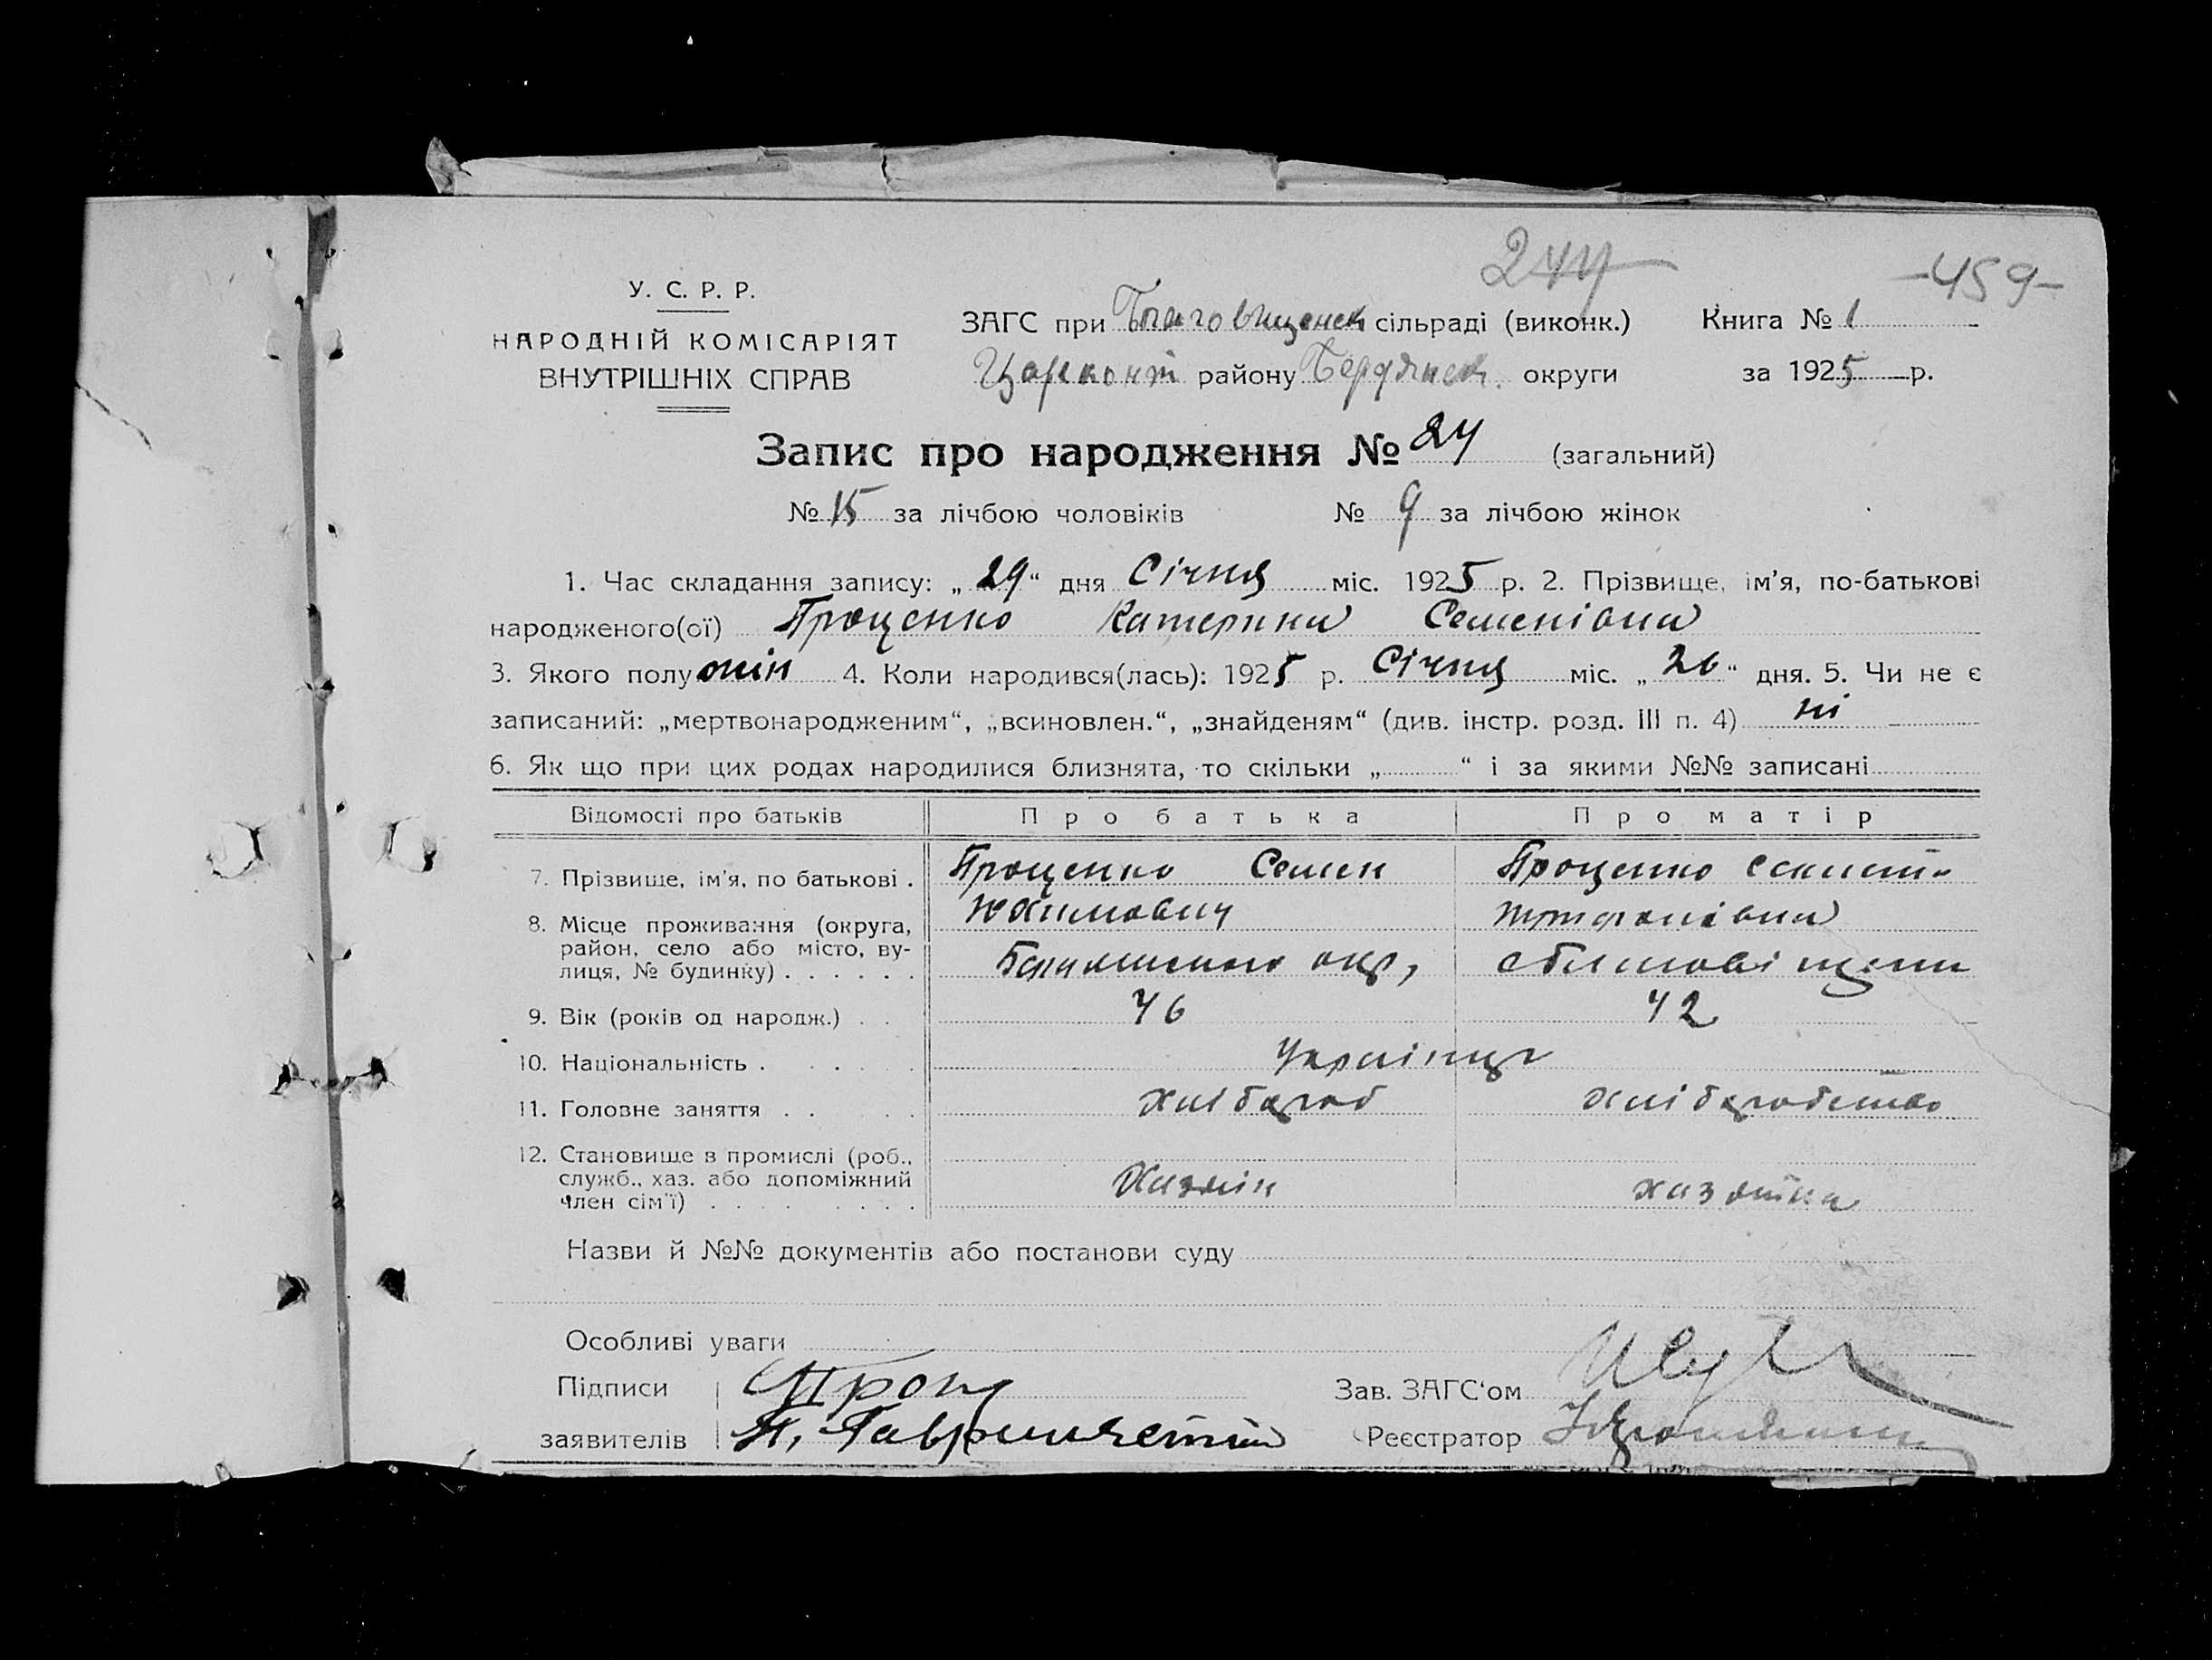 244
-459-
У. С. Р. Р.
НАРОДНІЙ КОМІСАРІЯТ
ВНУТРІШНІХ СПРАВ
ЗАГС при Благовіщенск сільраді (виконк.) Книга № 1
Цареконт району Бердянск. округи за 1925 р.
Запис про народження № 24 (загальний)
№ 15 за лічбою чоловіків № 9 за лічбою жінок
1. Час складання запису: „29“ дня Січня міс. 1925 р. 2. Прізвище, ім’я, по-батькові
народженого(ої) Проценко Катерина Семенівна
3. Якого полу жін 4. Коли народився(лась): 1925 р. Січня міс. „26“ дня. 5. Чи не є
записаний: „мертвонародженим“, „всиновлен.“, „знайденям“ (див. інстр. розд. III п. 4) ні
6. Як що при цих родах народилися близнята, то скільки „ “ і за якими №№ записані
Відомості про батьків Про батька Про матір
7. Прізвище, ім’я, по батькові . Проценко Семен Проценко
8. Місце проживання (округа,
район, село або місто, ву-
лиця, № будинку) . . . . . . окр,
9. Вік (років од народж.) . . 46 42
10. Національність . . . . . . Україінці
11. Головне заняття . . . . хлібороб хліборобство
12. Становище в промислі (роб.,
служб., хаз. або допоміжний
член сім’ї) . . . . . . . . Хазяін хазяйка
Назви й №№ документів або постанови суду
Особливі уваги
Підписи Проц Зав. ЗАГС‘ом
заявителів Реєстратор